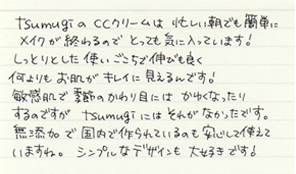 tsumugiのCCクリームは 忙しい朝でも簡単に
メイクが終わるので とっても気に入っています!
しっとりとした使いごこちで伸びも良く
何よりもお肌がキレイに見えるんです!
敏感肌で季節のかわり目には かゆくなったり
するのですが tsumugiにはそれがなかったです。
無添加で国内で作られているのも安心して使えて
いますね。 シンプルなデザインも 大好きです!